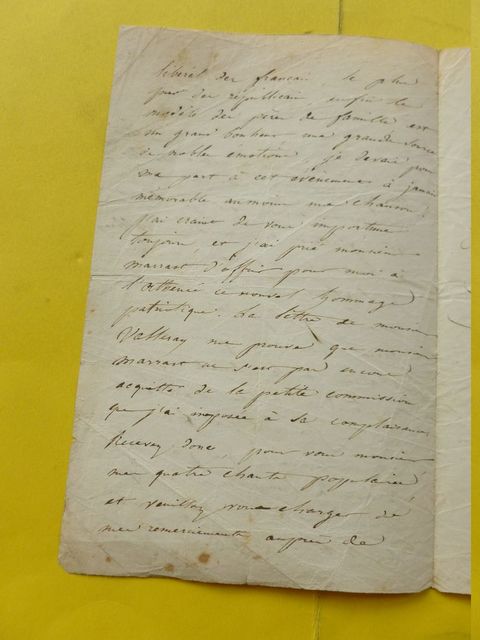 libéral des français, le plus
pur des républicains, enfin le
modèle des pères de famille est
un grand bonheur une grande source
de nobles émotions, je devais pour
ma part à cet événement à jamais
mémorable au moins ma chanson.
j'ai craint de vous importuner
toujours, et j'ai prié monsieur
marrast d'offrir pour moi à
l'athénée ce nouvel hommage
patriotique. La lettre de monsieur
me prouve que monsieur
marrast ne s'est pas encore
acquitté de la petite commission
que j'ai imposée à sa complaisance.
Recevez donc, pour vous monsieur
mes quatre chants populaires
et veuillez vous charger de
mes remerciements auprès de